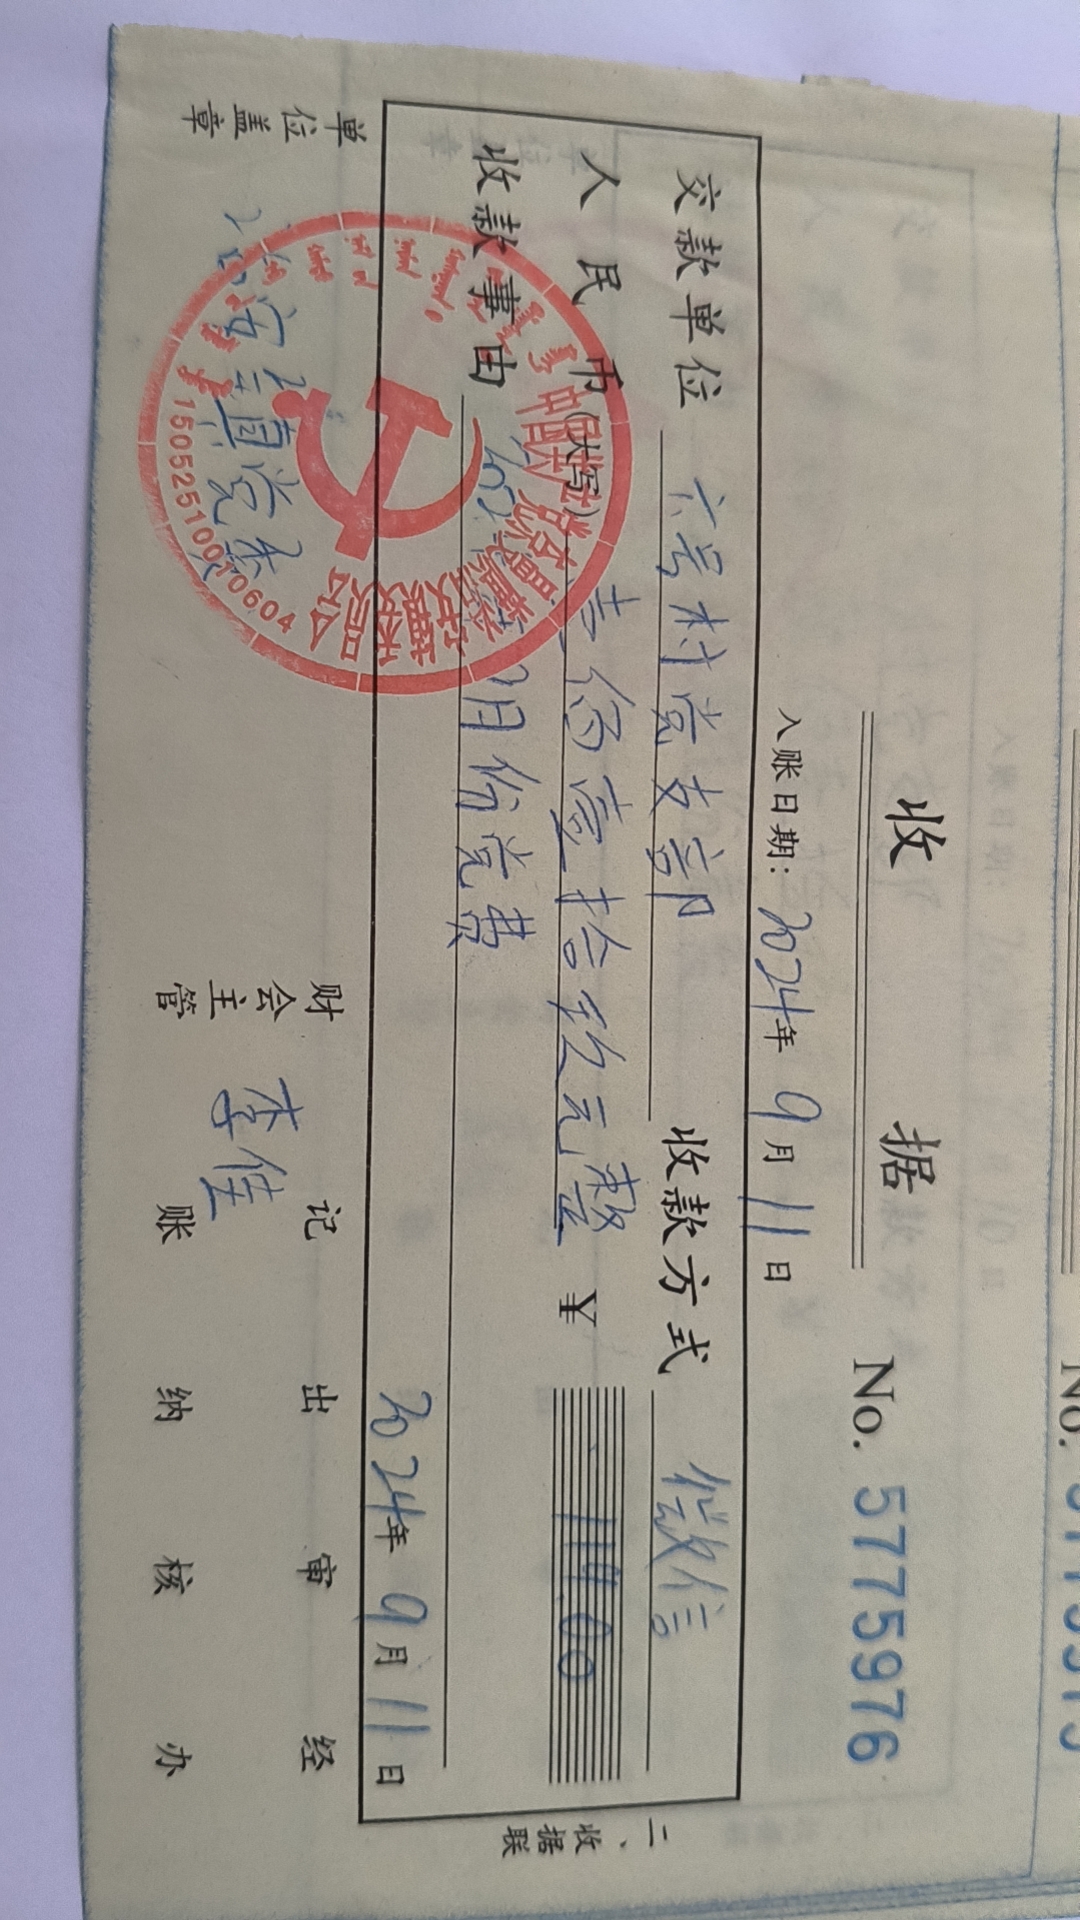 收 据
No. 5775976
入账日期: 2024年 9月 11日
交款单位 六号村党支部 收款方式 微信
人民币(大写) 壹佰壹拾玖元整 ¥ 119.00
收款事由 月份党费
2024年 9月 11日
二、收据联
单位盖章 财会主管 李佳 记账 出纳 审核 经办
治安镇党委
1505251001 0604